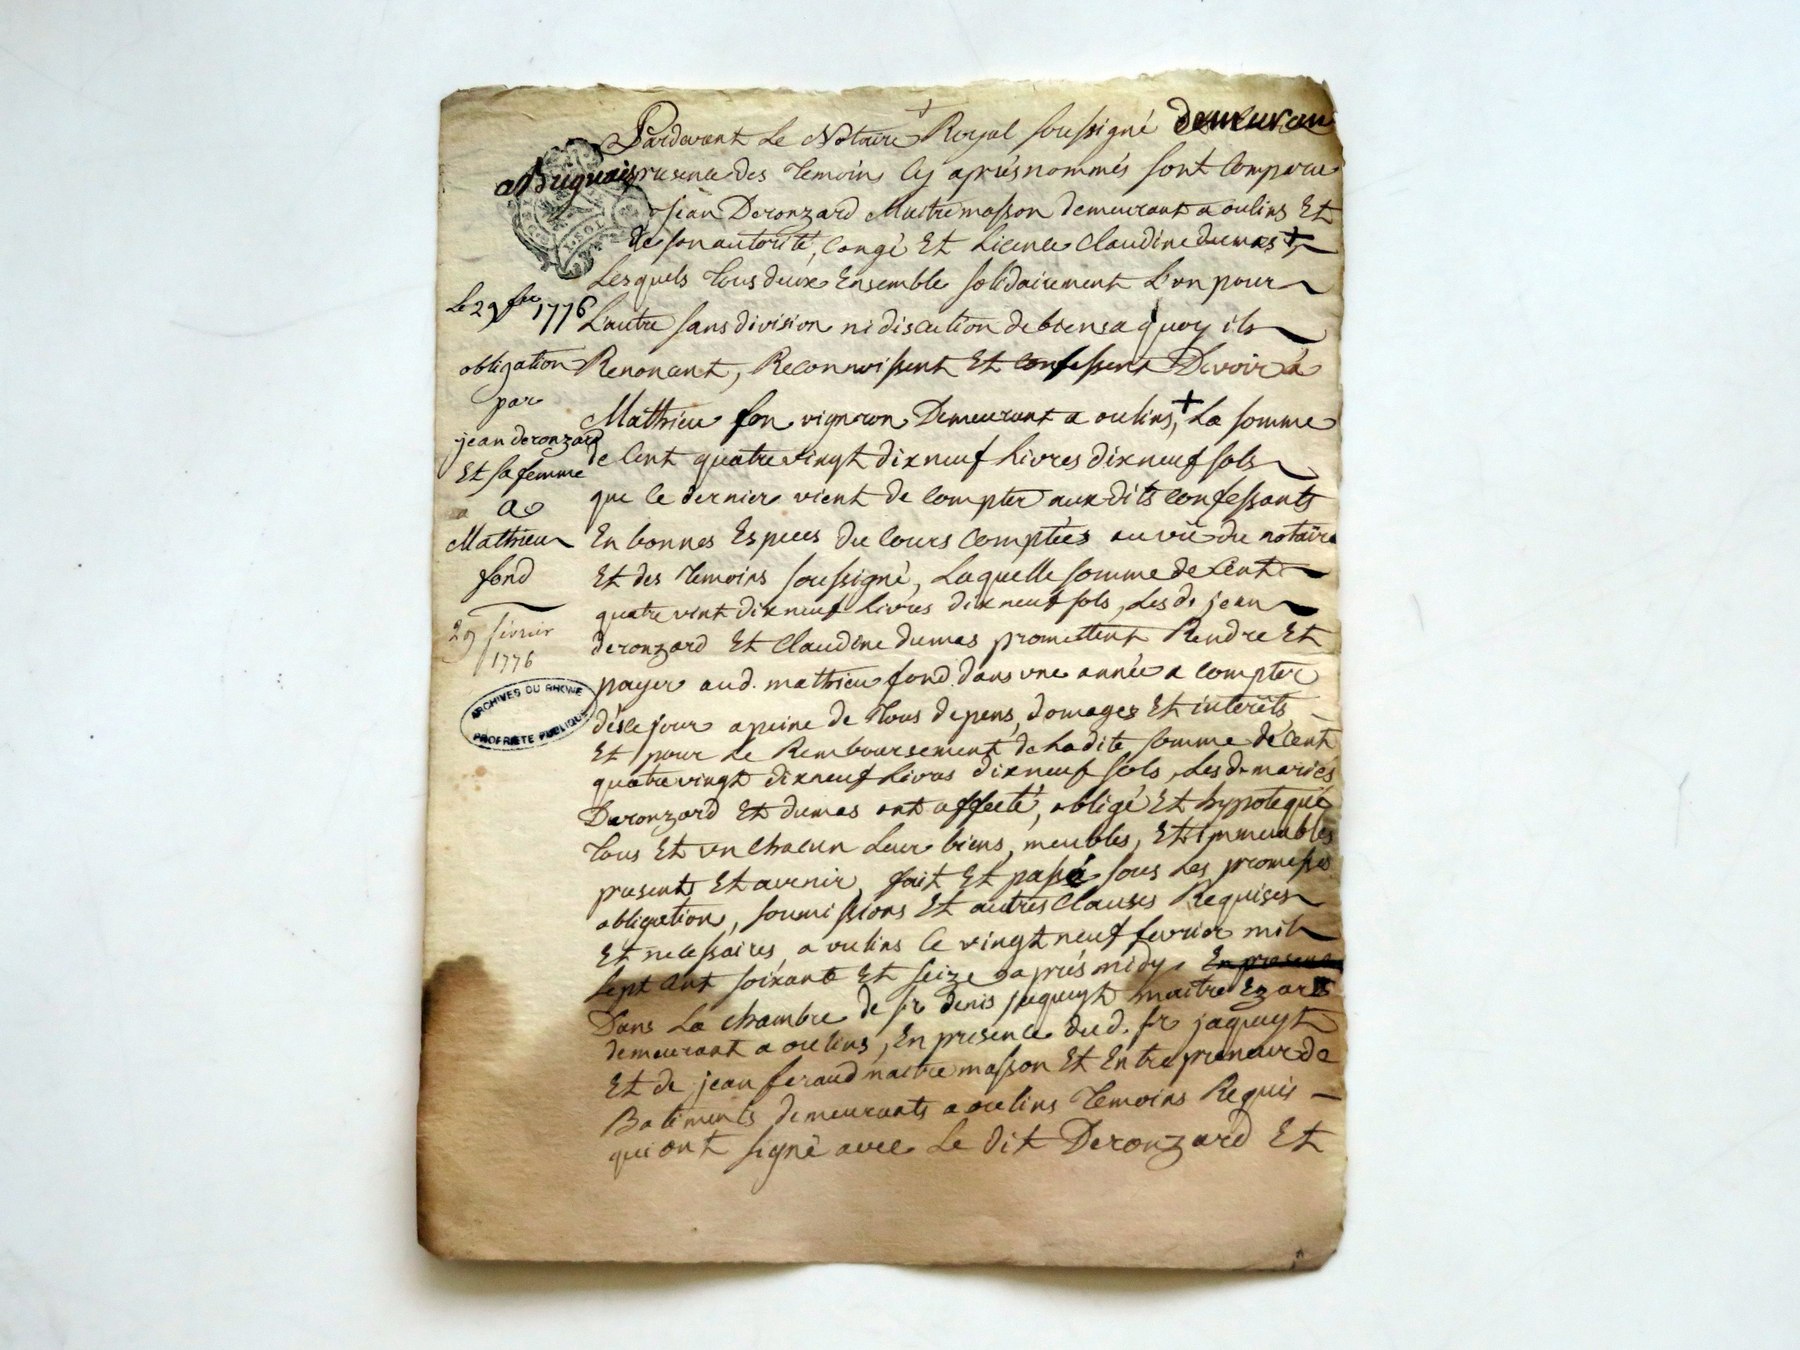 Pardevant Le Notaire Royal soussigné demeuran
a Brignais presence des temoins Cy aprésnommés sont comparu
jean Deronzard Maitre masson demeurant a oulins Et
de son autorité, congé Et Licence Claudine dumas
Lesquels tous deux Ensemble solidairement L'un pour
L'autre sans division ni discution de biens a quoy ils
Renonant, Reconnoissent Et confessent Devoir a
Mathieu fon vigneron Demeurant a oulins, La somme
de Cent quatre vingt dix neuf Livres dix neuf sols
que ce dernier vient de compter aux dits confessants
En bonnes Especes du Cours comptées au vû du notaire
Et des temoins soussigné, Laquelle somme de Cent
quatre vint dix neuf Livres dix neuf sols, Les d. jean
deronzard Et Claudine dumas promettent Rendre Et
payer aud. mathieu fond dans une année a compter
dès ce jour a peine de tous depens, domages Et interêts
Et pour Le Remboursement de Ladite somme de Cent
quatre vingt dix neuf Livres dix neuf sols, Les d. mariés
Deronzard Et dumas ont affecté, obligé Et hypotequé
tous Et un chacun Leur biens, meubles, Et immeubles
presents Et avenir, fait Et passé sous Les promesses
obligation, soumissions Et autres Clauses Requises
Et necessaires, a oulins Ce vingt neuf fevrier mil
sept cent soixante Et seize aprés midy, En presence
Dans La chambre de sr denis jaqueyt maitre Ez arts
demeurant a oulins, En presence dud. sr jaqueyt
Et de jean feraud maitre masson Et Entrepreneur de
Batiments demeurants a oulins temoins Requis
qui ont signé avec Le dit Deronzard Et
Le 29 fer 1776
obligation
par
jean deronzard
Et sa femme
a
Mathieu
fond
29 fevrier
1776
ARCHIVES DU RHONE
PROPRIETE PUBLIQUE